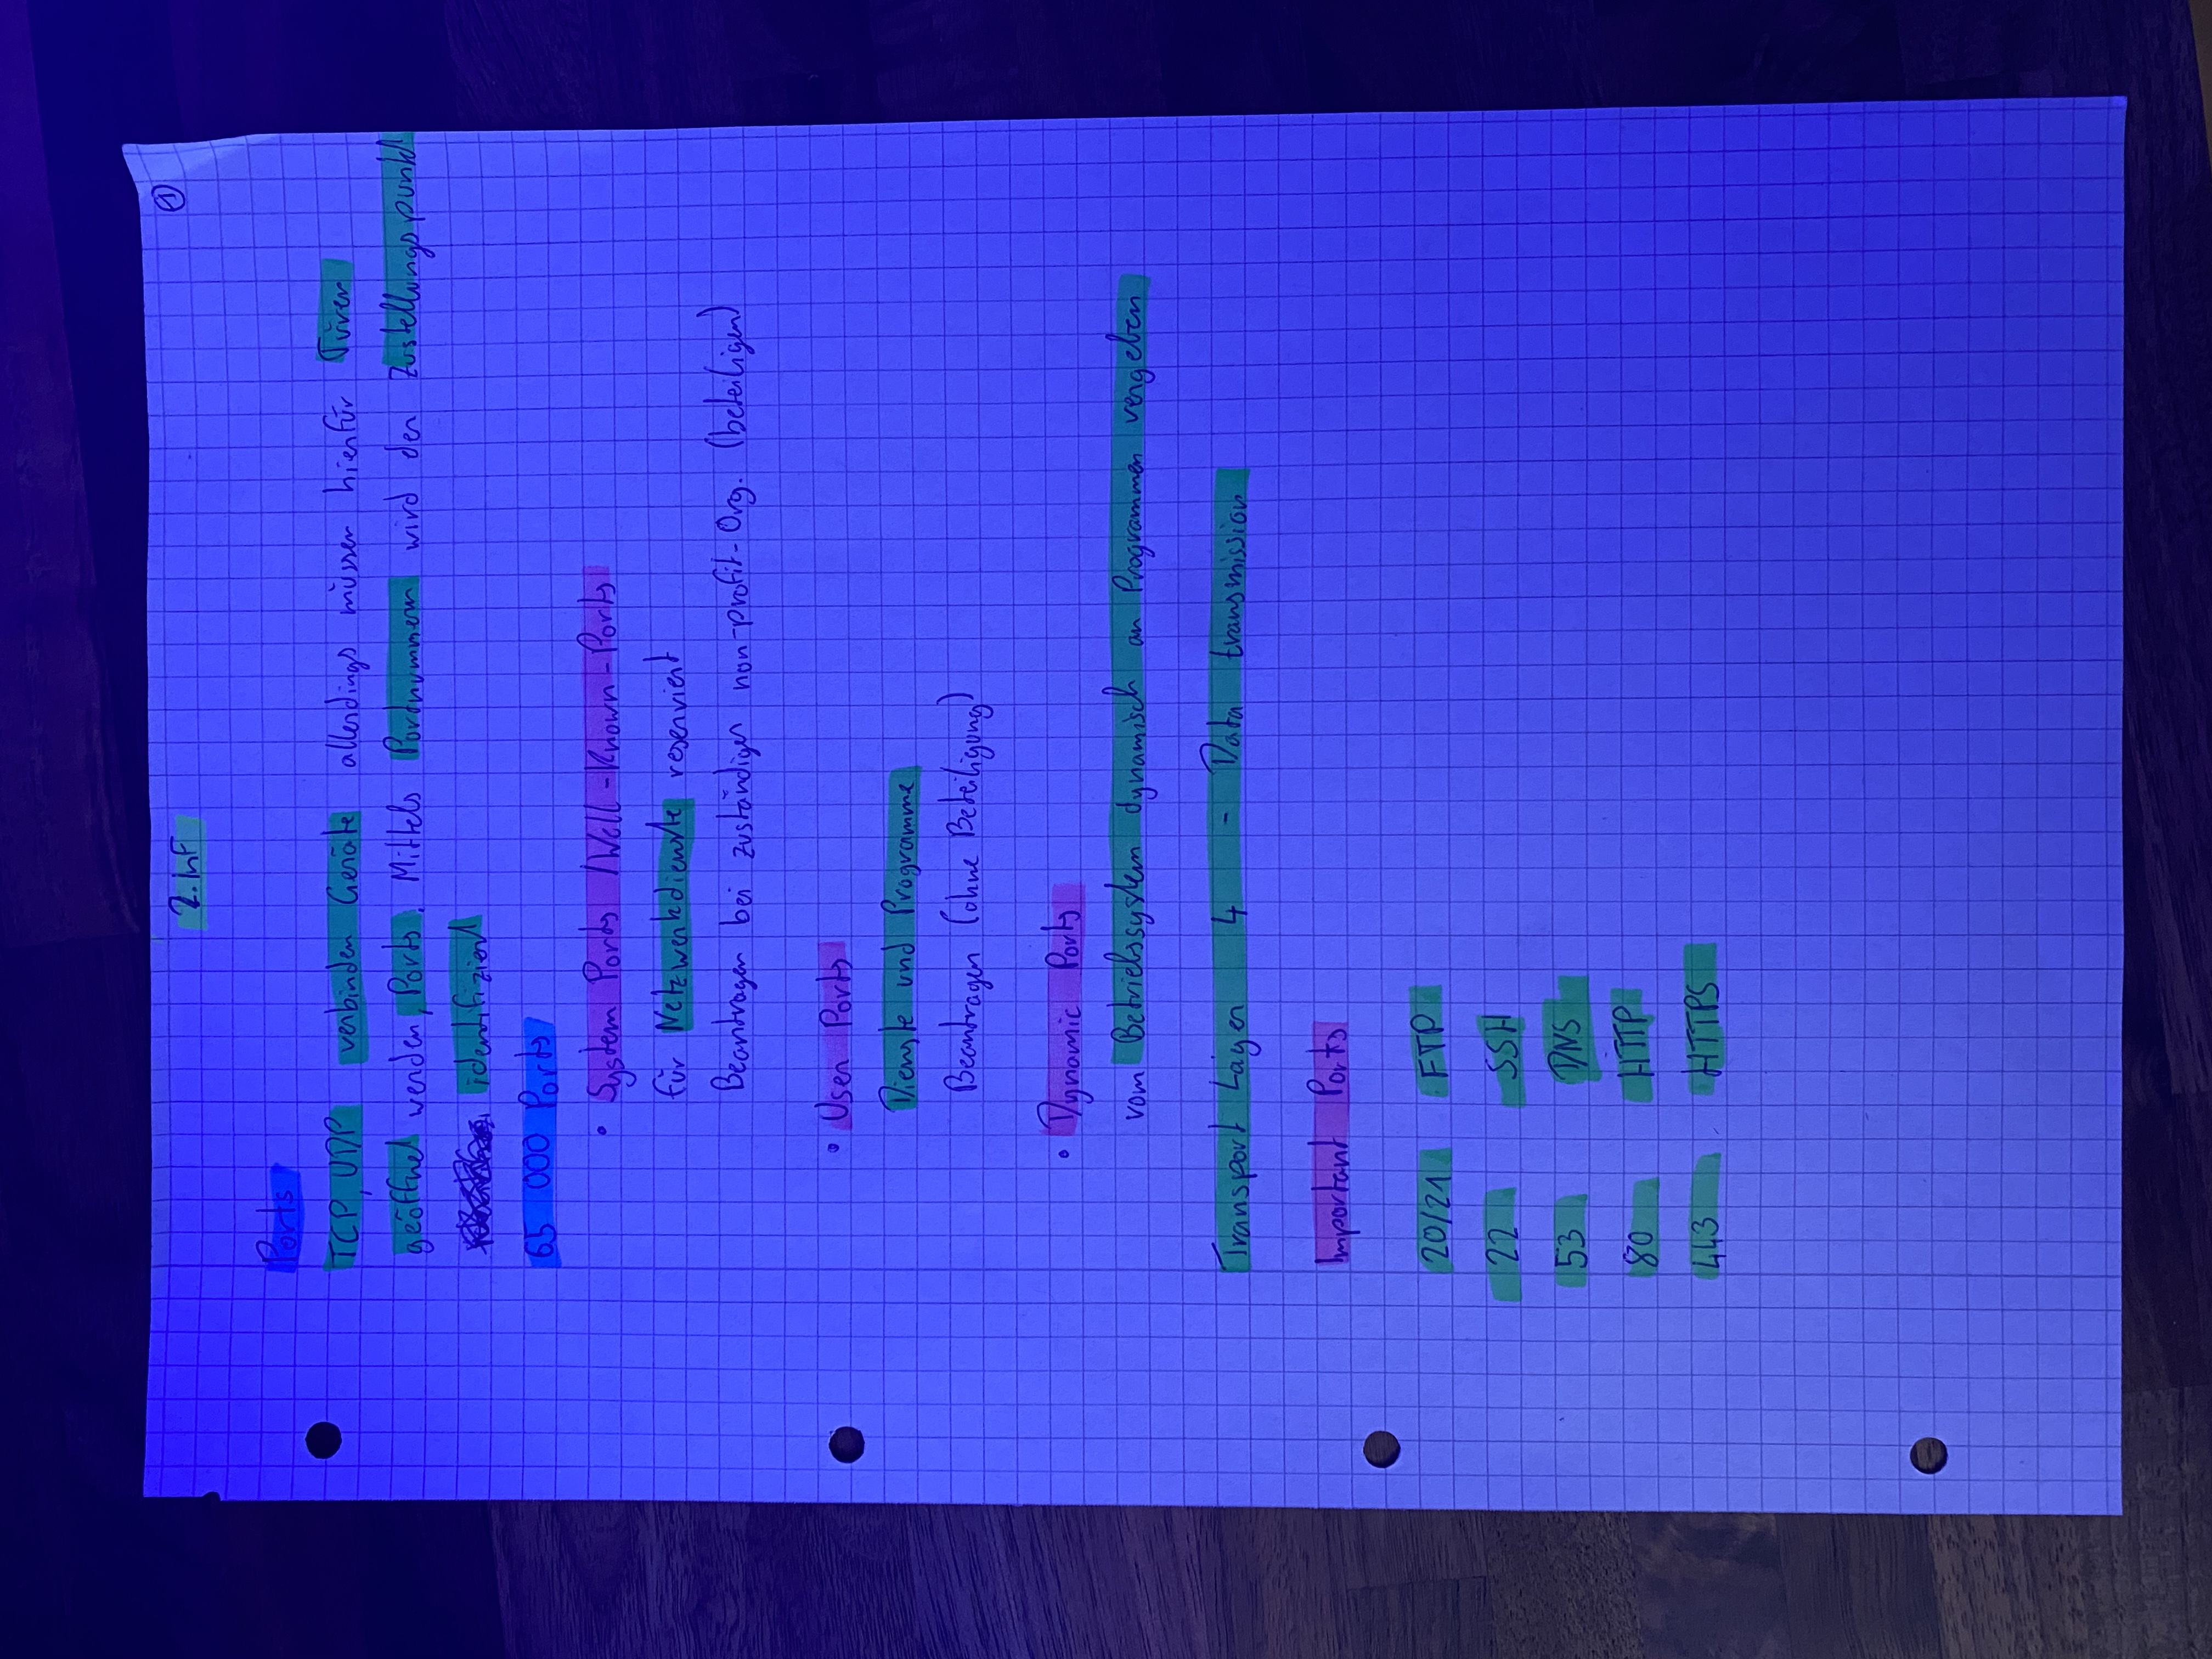 2. Inf
①
Ports
TCP, UDP verbinden Geräte allerdings müssen hierfür Türen
geöffnet werden, Ports. Mittels Portnummern wird der Zustellungspunkt
identifiziert
65 000 Ports
• System Ports / Well-Known-Ports
für Netzwerkdienste reserviert
Beantragen bei zuständigen non-profit-Org. (beteiligen)
• User Ports
Dienste und Programme
Beantragen (ohne Beteiligung)
• Dynamic Ports
vom Betriebssystem dynamisch an Programmen vergeben
Transport Layer 4 - Data transmission
Important Ports
20/21 FTP
22 SSH
53 DNS
80 HTTP
443 HTTPS